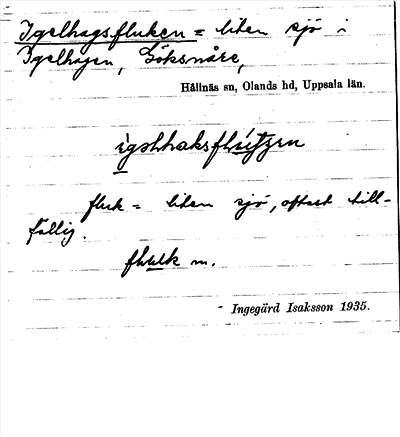 Igelhagsfluken = liten sjö i
Igelhagen, Söksnåre,
Hållnäs sn, Olands hd, Uppsala län.
fluk = liten sjö, oftast till-
fällig.
m.
- Ingegärd Isaksson 1935.